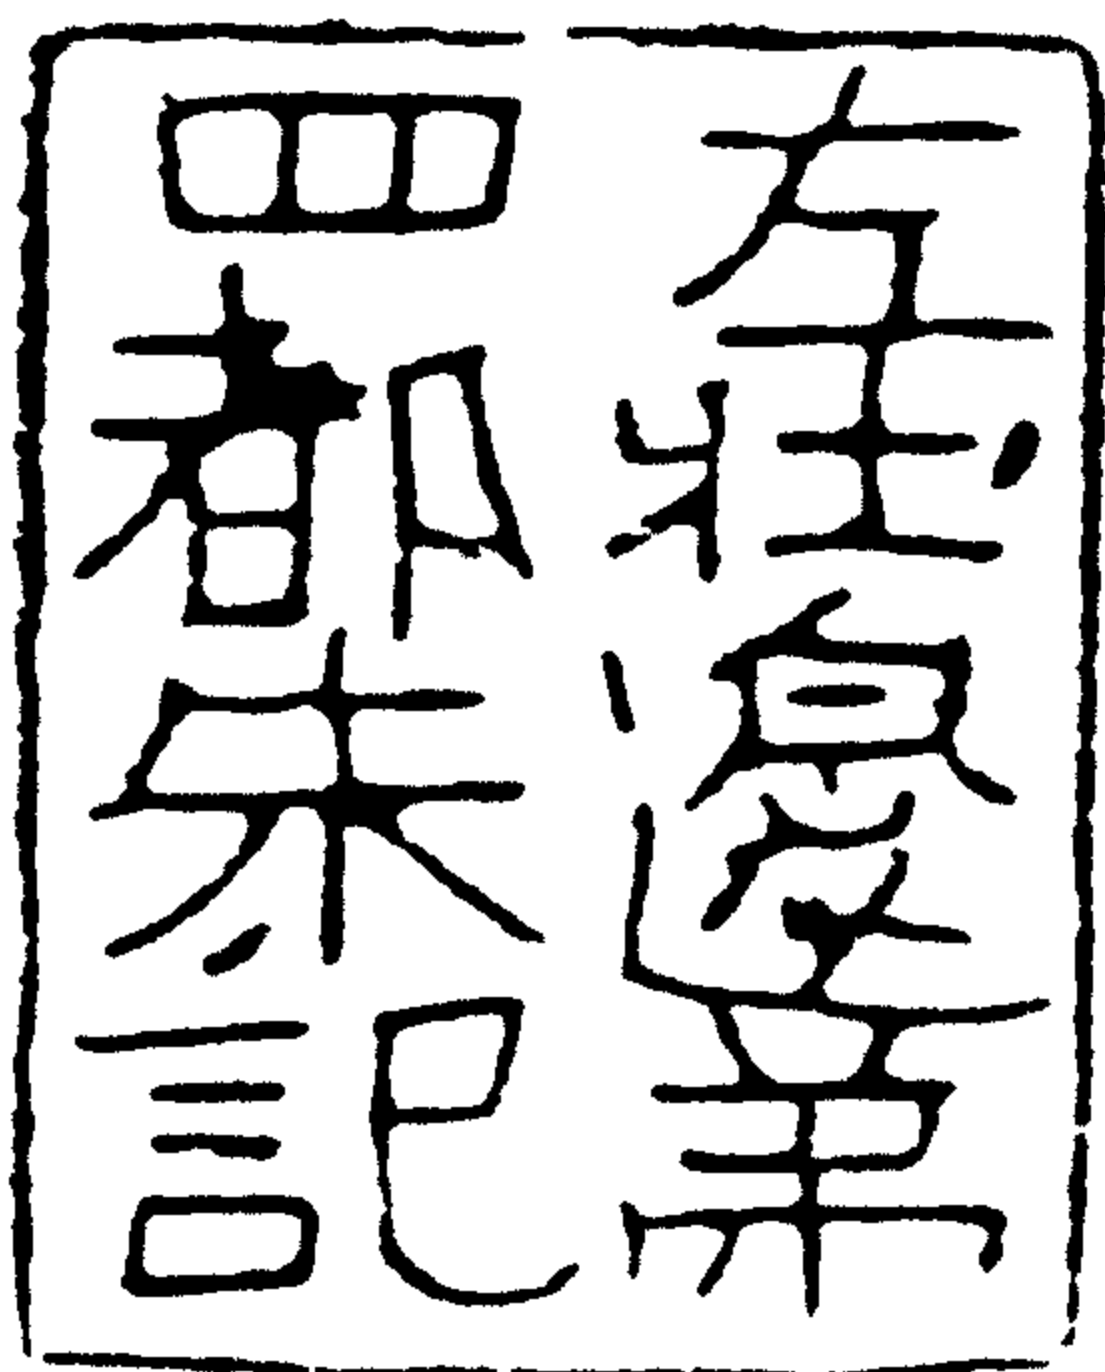 左壯邊第
四都朱記